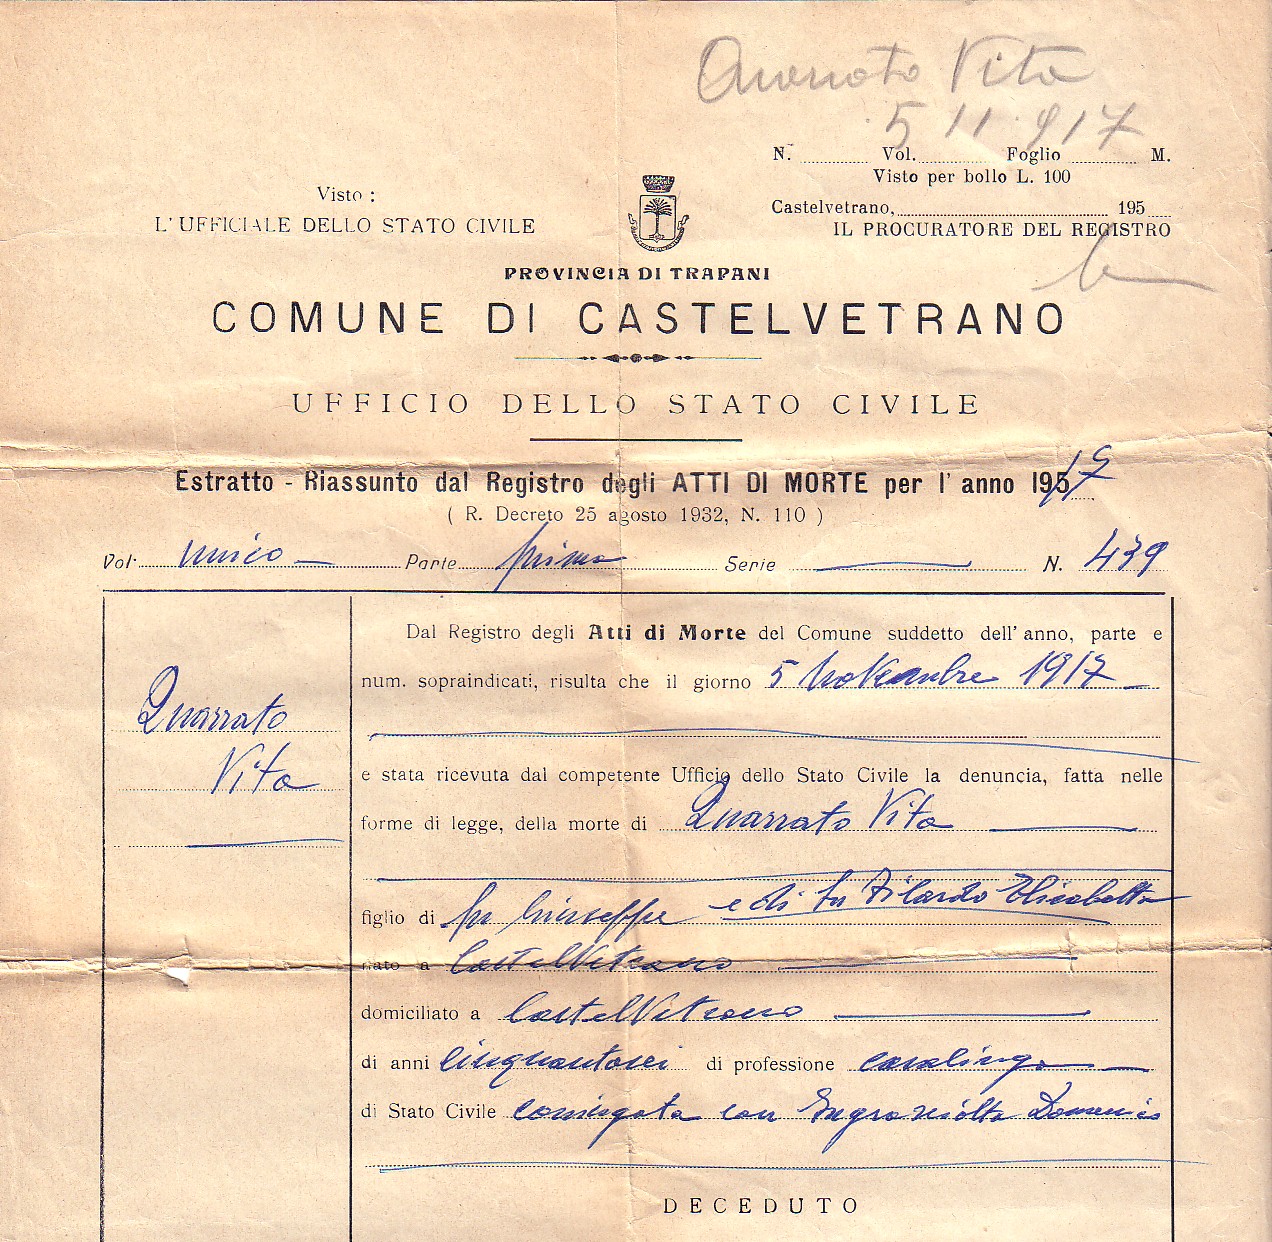 Quarrato Vita
5 11 917
N. Vol. Foglio M.
Visto per bollo L. 100
Castelvetrano, 195
IL PROCURATORE DEL REGISTRO
Visto :
L'UFFICIALE DELLO STATO CIVILE
PROVINCIA DI TRAPANI
COMUNE DI CASTELVETRANO
UFFICIO DELLO STATO CIVILE
Estratto - Riassunto dal Registro degli ATTI DI MORTE per l'anno 1917
( R. Decreto 25 agosto 1932, N. 110 )
Vol. unico Parte prima Serie N. 439
Quarrato
Vita
Dal Registro degli Atti di Morte del Comune suddetto dell'anno, parte e
num. sopraindicati, risulta che il giorno 5 Novembre 1917
e stata ricevuta dal competente Ufficio dello Stato Civile la denuncia, fatta nelle
forme di legge, della morte di Quarrato Vita
figlio di fu Giuseppe e di fu Filardo Elisabetta
nato a CastelVetrano
domiciliato a CastelVetrano
di anni cinquantasei di professione casalinga
di Stato Civile coniugata con Ingrasciotta Domenico
DECEDUTO